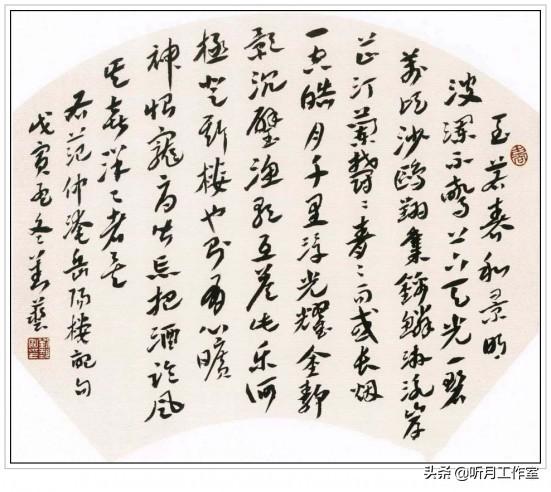 至若春和景明
波瀾不驚上下天光一碧
萬頃沙鷗翔集錦鱗游泳岸
芷汀蘭鬱〻青〻而或长烟
一空皓月千里浮光耀金静
影沉璧渔歌互答此乐何
極登斯楼也则有心曠
神怡寵辱皆忘把酒临风
其喜洋〻者矣
右范仲淹岳阳楼記句
戊寅孟冬劉藝
头条 @听月工作室